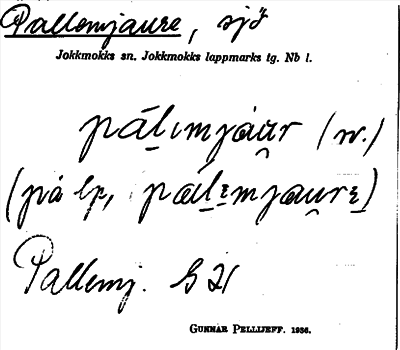 Pallemjaure, sjö
Jokkmokks sn. Jokkmokks lappmarks tg. Nb l.
pálımjáu̯r (w.)
(på lp, páḻᴇmjau̯rᴇ)
Pallemj. G 21
GUNNAR PELLIJEFF. 1936.